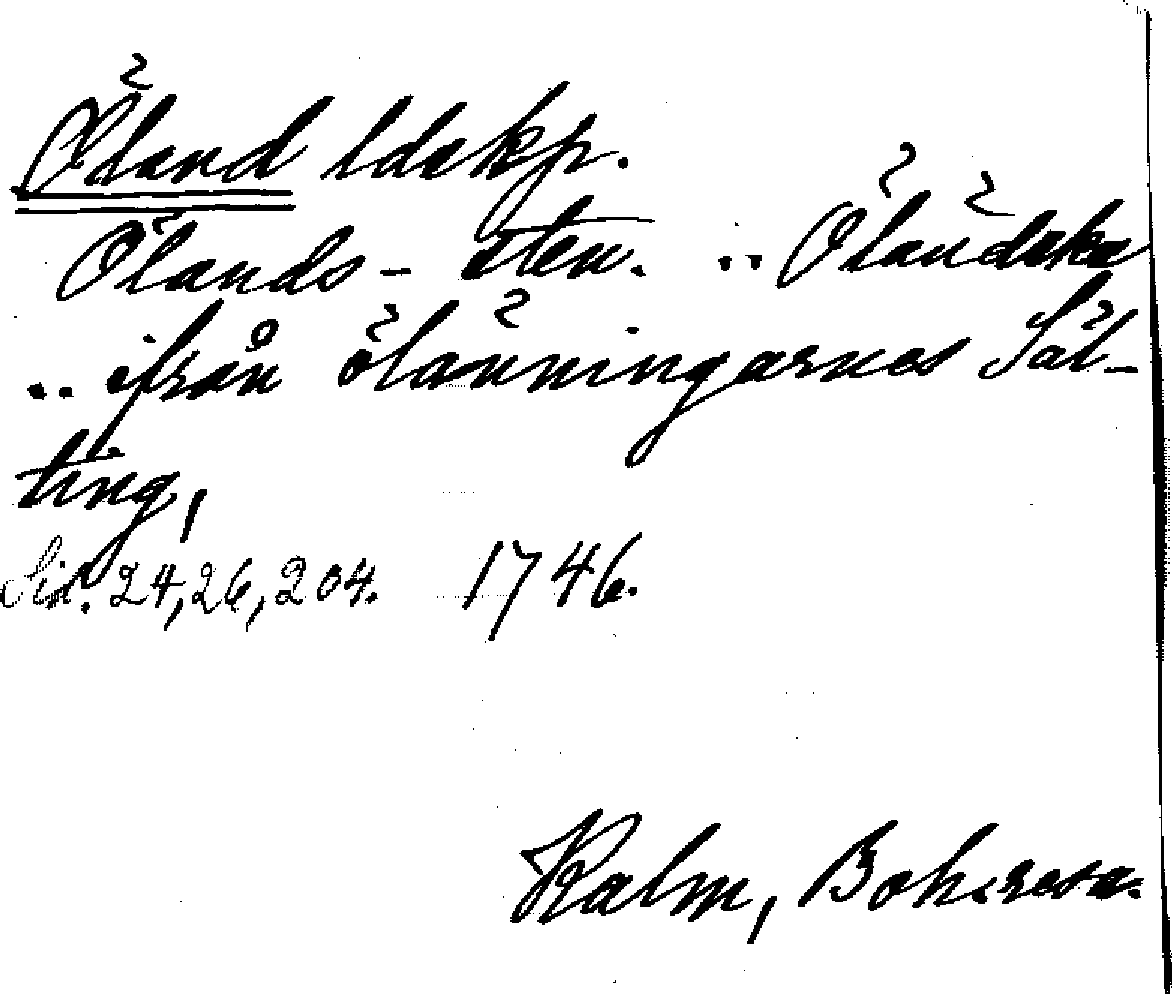 Öland ldskp.
Ölands-sten. .. Öländska
.. ifrån ölänningarnes Säl-
ting,
Sid. 24, 26, 204. 1746.
Kalm, Boh.resa.